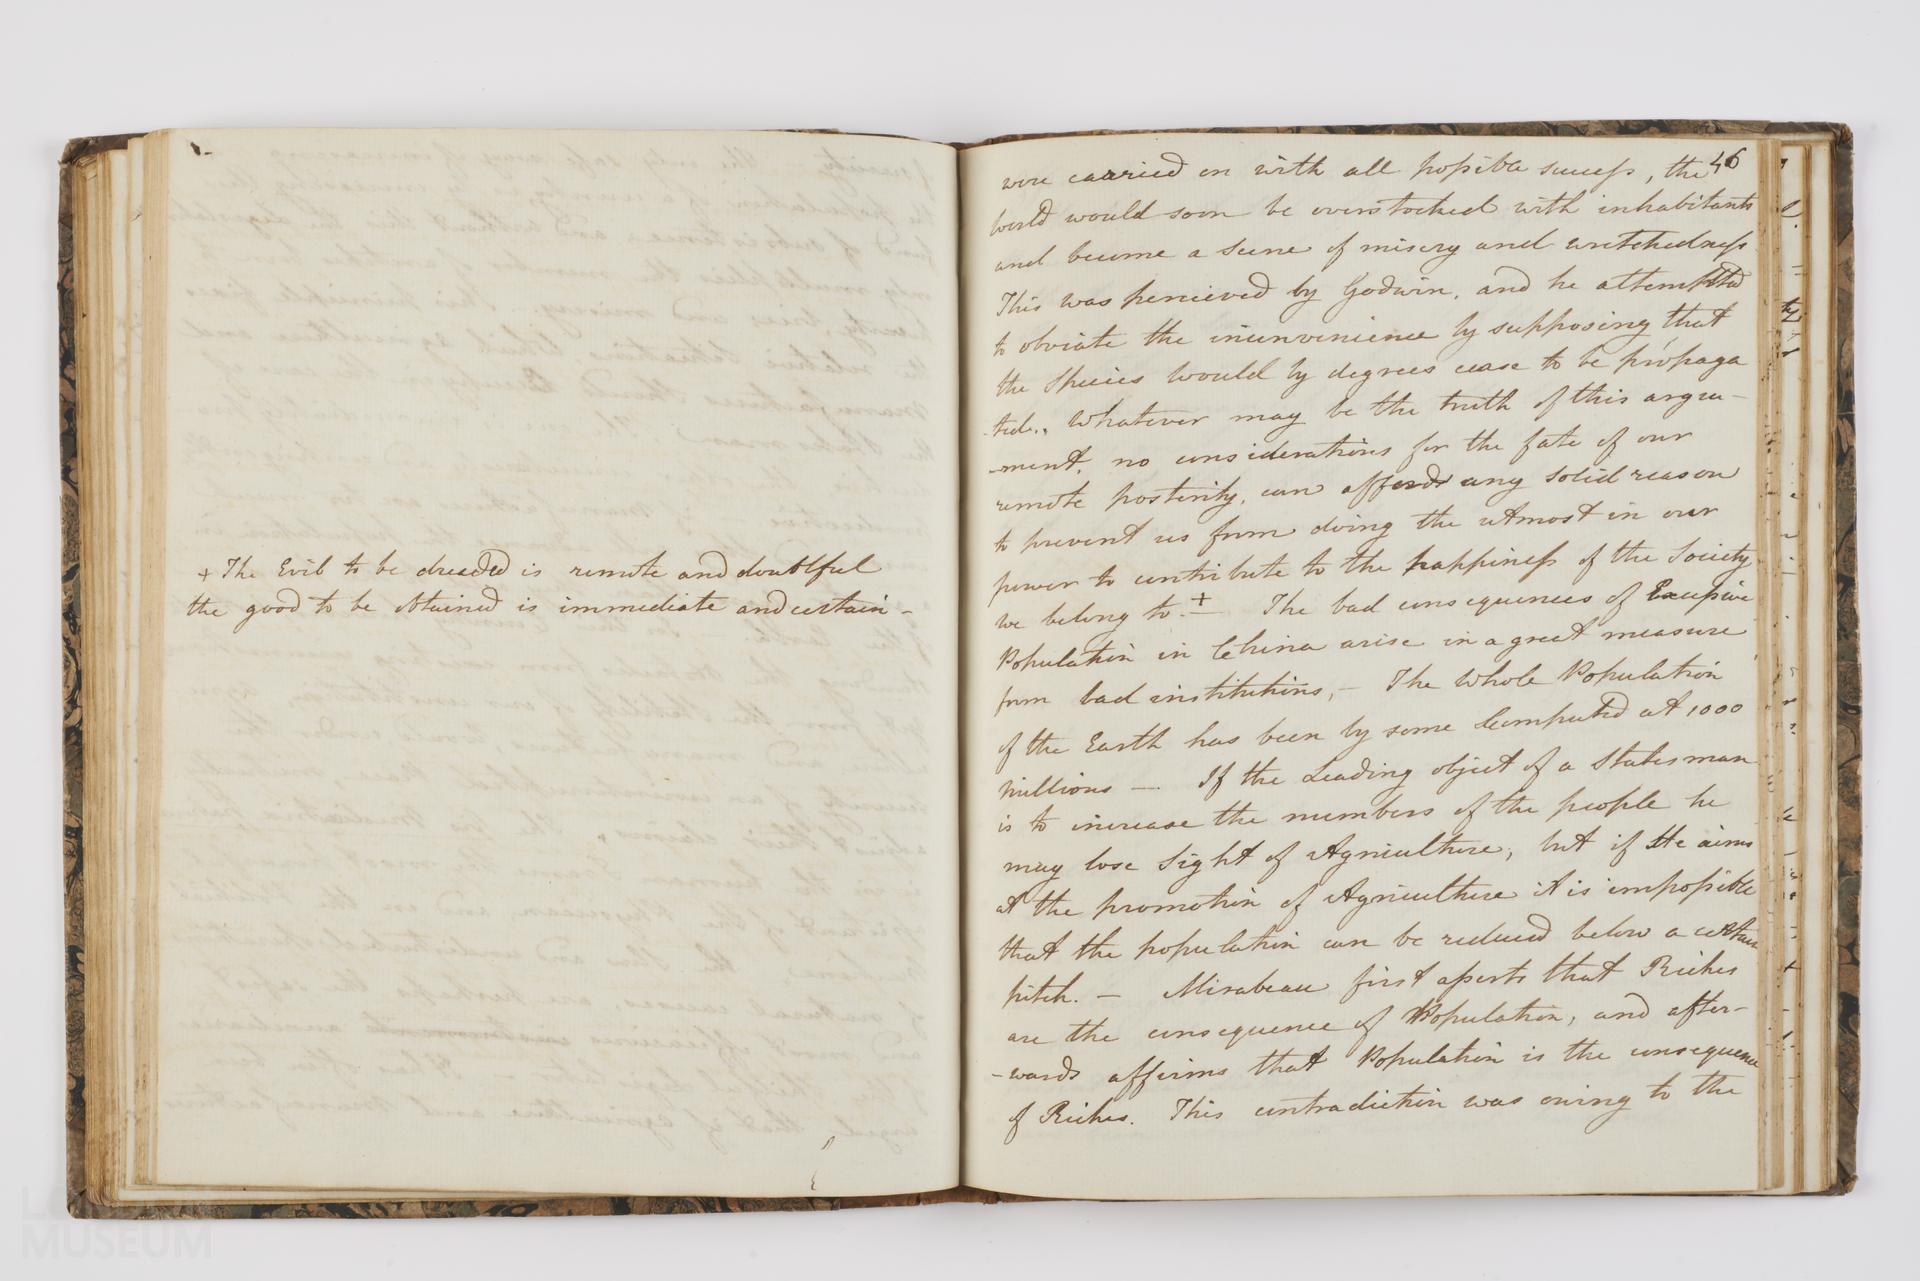 + The Evil to be dreaded is remote and doubtful
the good to be obtained is immediate and certain -
46
were carried on with all possible success, the
world would soon be overstocked with inhabitants
and become a scene of misery and wretchedness
This was perceived by Godwin, and he attempted
to obviate the inconvenience by supposing that
the Species would by degrees cease to be propaga
-ted. Whatever may be the truth of this argu-
-ment, no considerations for the fate of our
remote posterity, can afford any solid reason
to prevent us from doing the utmost in our
power to contribute to the happiness of the Society
we belong to. + The bad consequences of Excessive
Population in China arise in a great measure
from bad institutions, - The whole Population
of the Earth has been by some Computed at 1000
Millions — If the Leading object of a Statesman
is to increase the numbers of the people he
may lose Sight of Agriculture, but if He aims
at the promotion of Agriculture it is impossible
that the population can be reduced below a certain
pitch. - Mirabeau first asserts that Riches
are the consequence of Population, and after-
-wards affirms that Population is the consequence
of Riches. This contradiction was owing to the
LONDON
MUSEUM